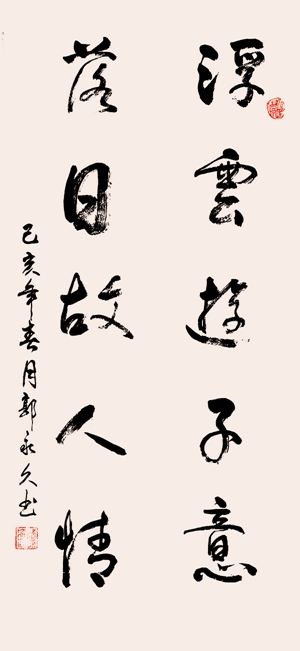 浮雲遊子意
落日故人情
己亥年春月郭永久书